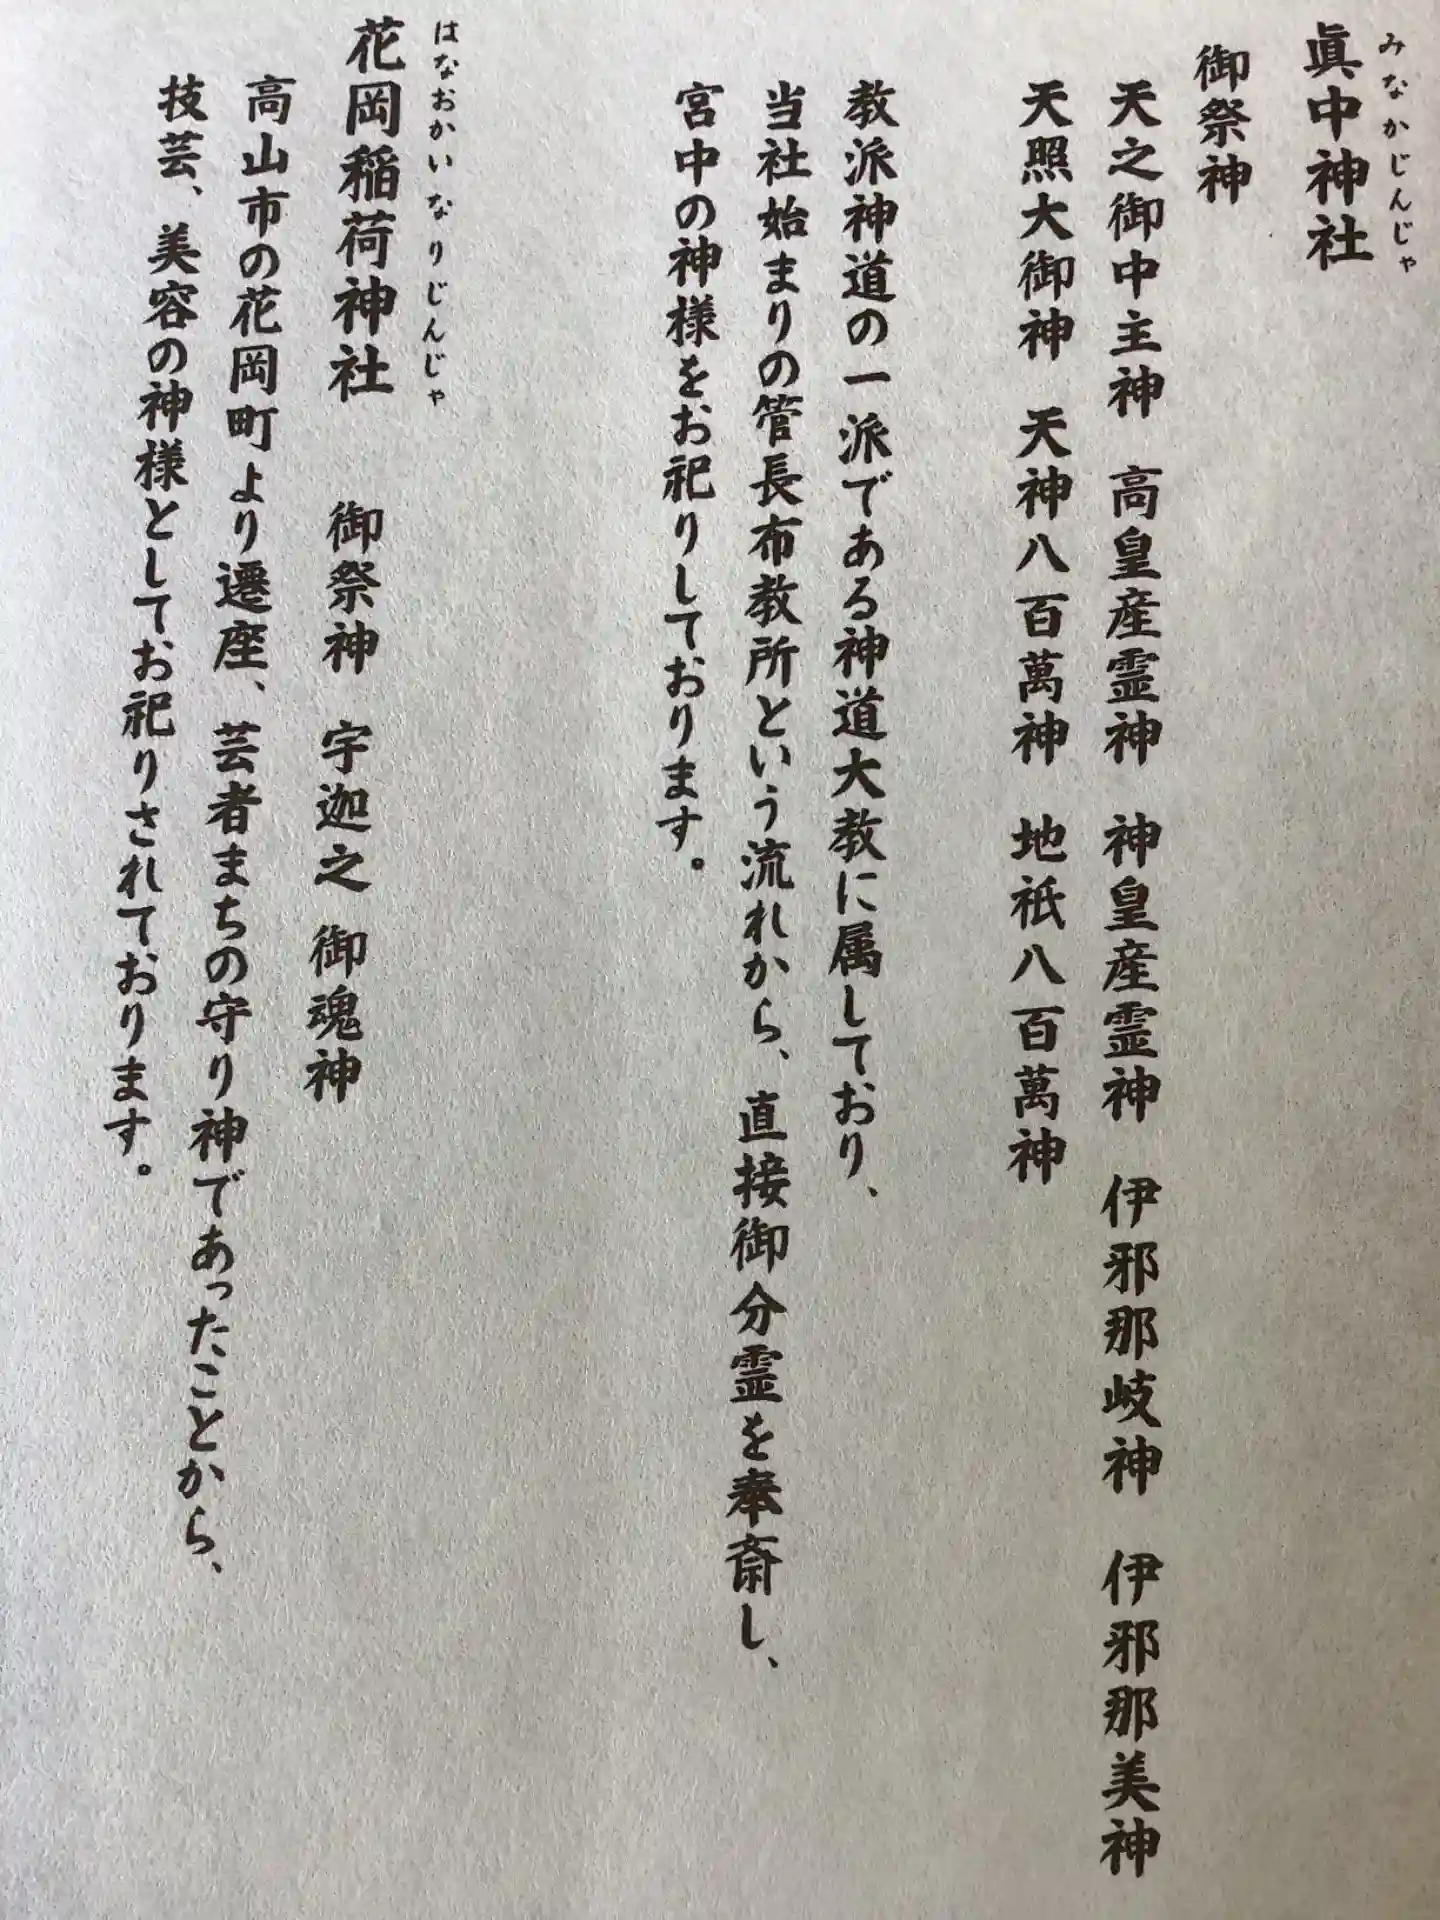 眞中神社
みなかじんじゃ
御祭神
天之御中主神 高皇産霊神 神皇産霊神 伊邪那岐神 伊邪那美神
天照大御神 天神八百萬神 地祇八百萬神
教派神道の一派である神道大教に属しており、
当社始まりの管長布教所という流れから、直接御分霊を奉斎し、
宮中の神様をお祀りしております。
花岡稲荷神社 御祭神 宇迦之御魂神
はなおかいなりじんじゃ
高山市の花岡町より遷座、芸者まちの守り神であったことから、
技芸、美容の神様としてお祀りされております。